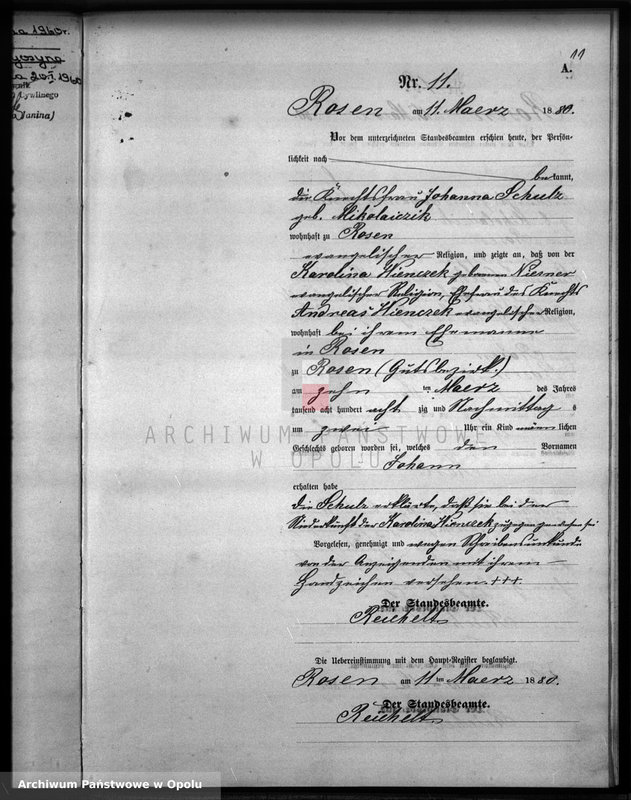 na 1960 r.
na 20 I 1960
Cywilnego
Janina)
11
A.
Nr. 11.
Rosen am 11. Maerz 1880.
Vor dem unterzeichneten Standesbeamten erschien heute, der Persön-
lichkeit nach
bekannt,
die Knechtsfrau Johanna Schulz
geb. Mikolaiczik
wohnhaft zu Rosen
evangelischer Religion, und zeigte an, daß von der
Karolina Kienczek geborenen Niesner
evangelischer Religion, Ehefrau des Knechts
Andreas Kienczek evangelischer Religion,
wohnhaft bei ihrem Ehemanne
in Rosen
zu Rosen (Gutsbezirk)
am zehn ten Maerz des Jahres
tausend acht hundert achtzig und Nachmittag s
um zwei Uhr ein Kind männlichen
Geschlechts geboren worden sei, welches den Vornamen
Johann
erhalten habe
Die Schulz erklärte, daß sie bei der
Niederkunft der Karolina Kienczek zugegen gewesen sei
Vorgelesen, genehmigt und wegen Schreibensunkunde
von der Anzeigenden mit ihrem
Handzeichen versehen. +++
Der Standesbeamte.
Reichelt
Die Uebereinstimmung mit dem Haupt-Register beglaubigt.
Rosen am 11 ten Maerz 1880.
Der Standesbeamte.
Reichelt
ARCHIWUM PAŃSTWOWE
W OPOLU
Archiwum Państwowe w Opolu